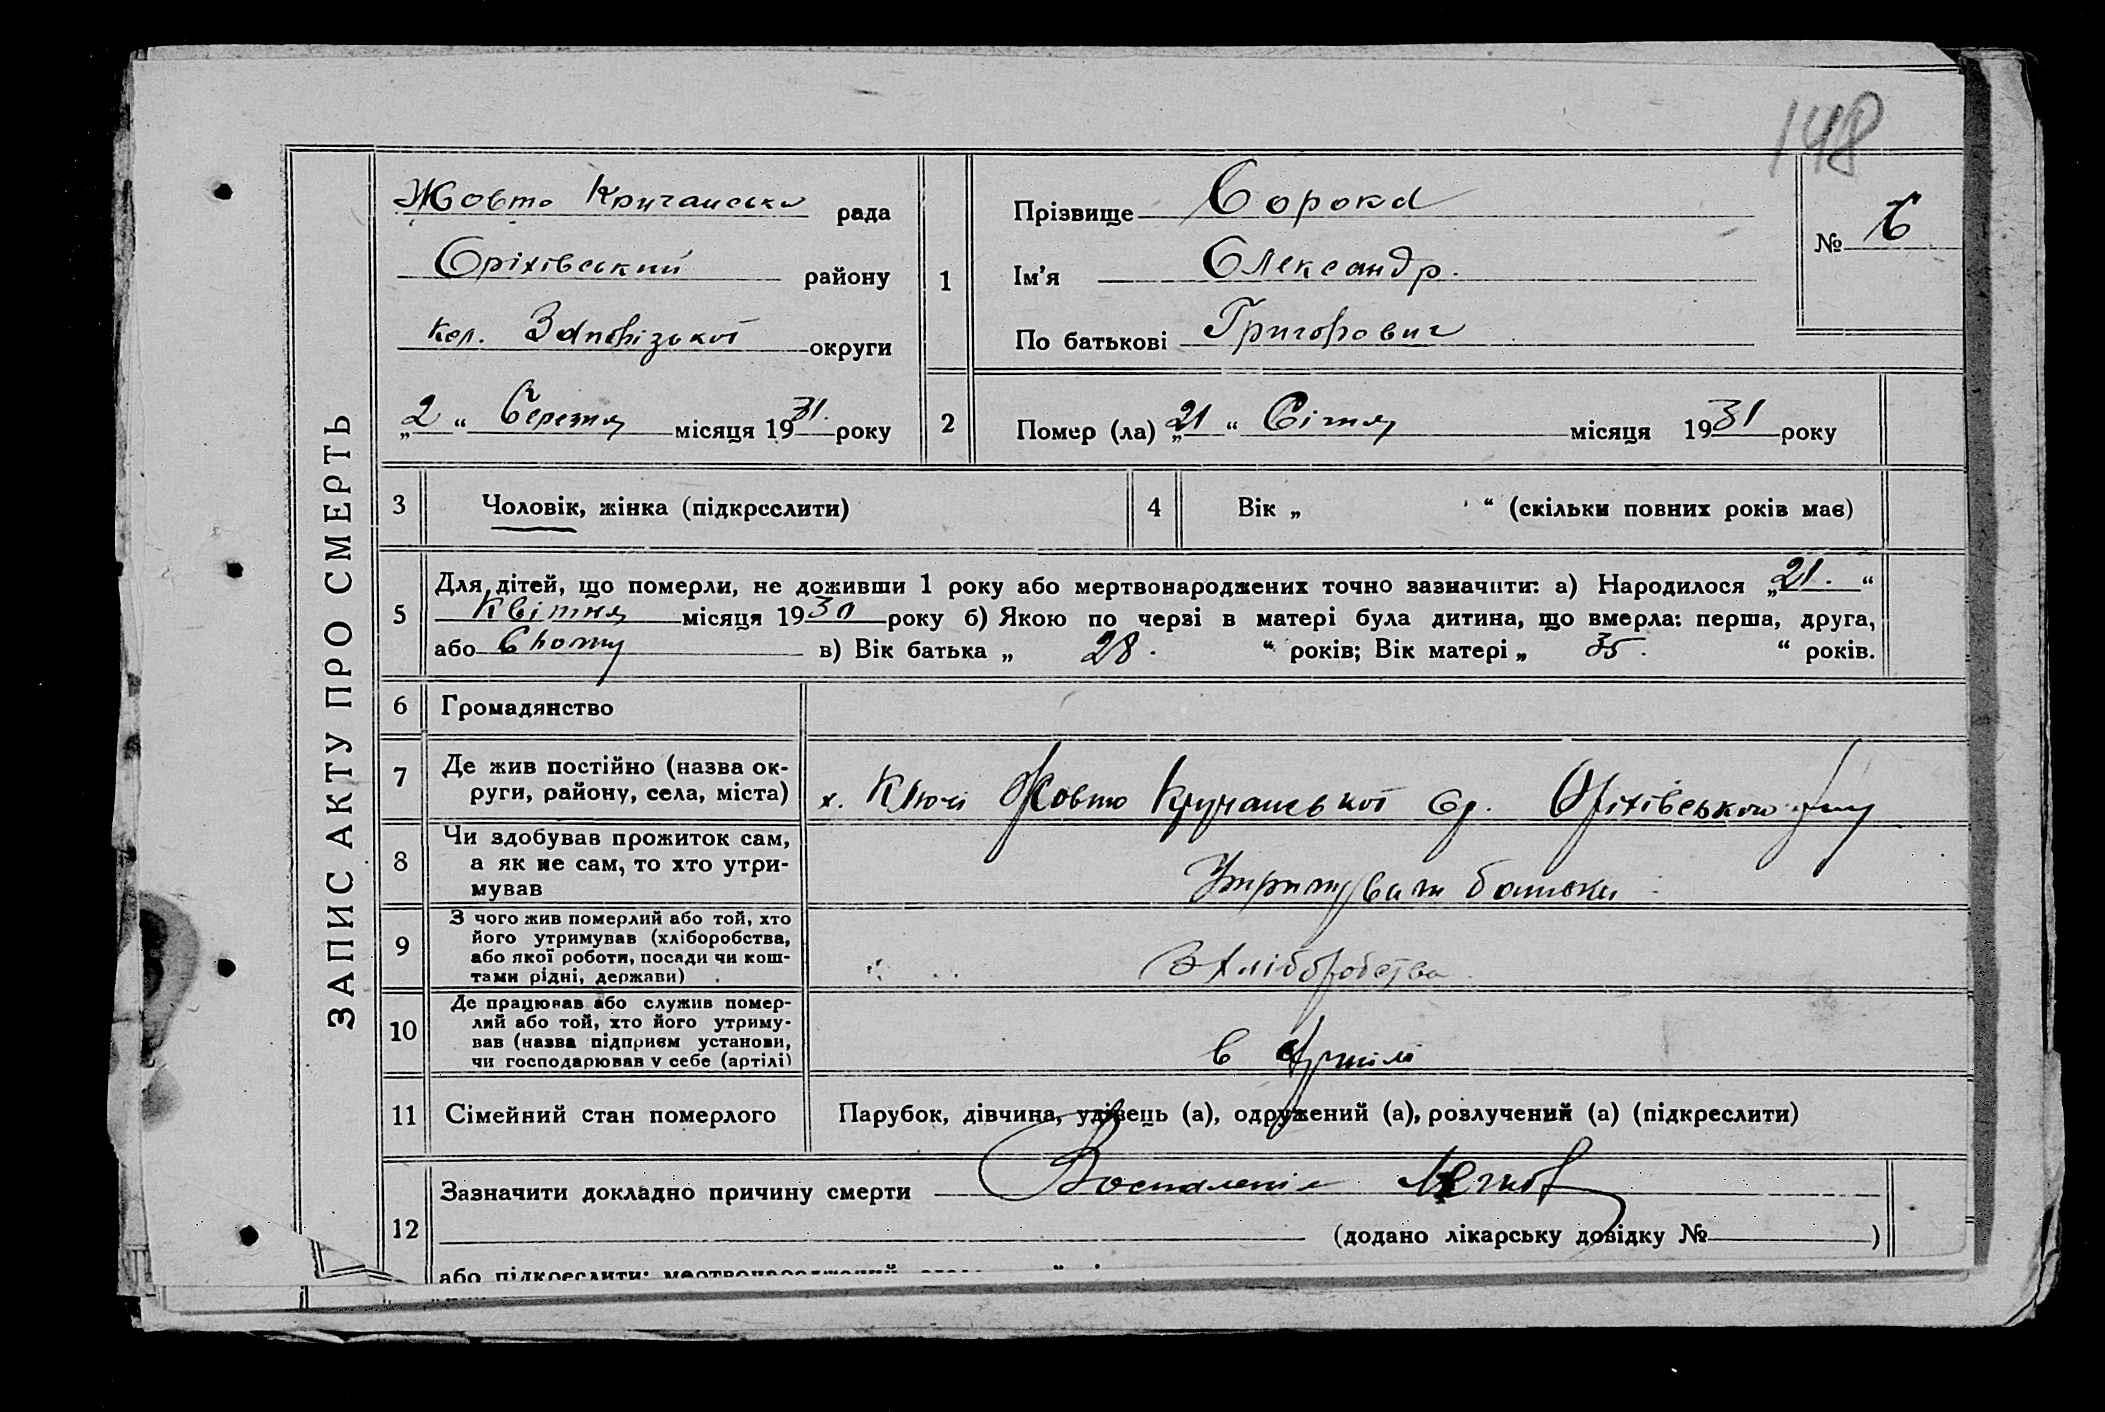 148
ЗАПИС АКТУ ПРО СМЕРТЬ
Жовто Кручанська рада
Оріхівський району
кол. Запорізької округи
„2“ Березня місяця 1931. року
1
Прізвище Сорока
Ім'я Олександр.
По батькові Григорович
№ 6
2
Помер (ла) „21“ Січня місяця 1931 року
3 Чоловік, жінка (підкреслити)
4 Вік „ “ (скільки повних років має)
5
Для дітей, що померли, не доживши 1 року або мертвонароджених точно зазначити: а) Народилося „21.“
Квітня місяця 1930 року б) Якою по черзі в матері була дитина, що вмерла: перша, друга,
або в) Вік батька „ 28. “ років; Вік матері „ 35. “ років.
6 Громадянство
7 Де жив постійно (назва ок-
руги, району, села, міста)
х. Ключі Жовто Кручанської с/р. Оріхівського р-ну
8 Чи здобував прожиток сам,
а як не сам, то хто утри-
мував
Утримували батьки
9 З чого жив померлий або той, хто
його утримував (хліборобства,
або якої роботи, посади чи кош-
тами рідні, держави)
З хліборобства
10 Де працював або служив помер-
лий або той, хто його утриму-
вав (назва підприєм установи,
чи господарював у себе (артілі)
в артілі
11 Сімейний стан померлого
Парубок, дівчина, удівець (а), одружений (а), розлучений (а) (підкреслити)
12
Зазначити докладно причину смерти Воспаленіє Легков
(додано лікарську довідку № )
або підкреслити: мертвонароджений